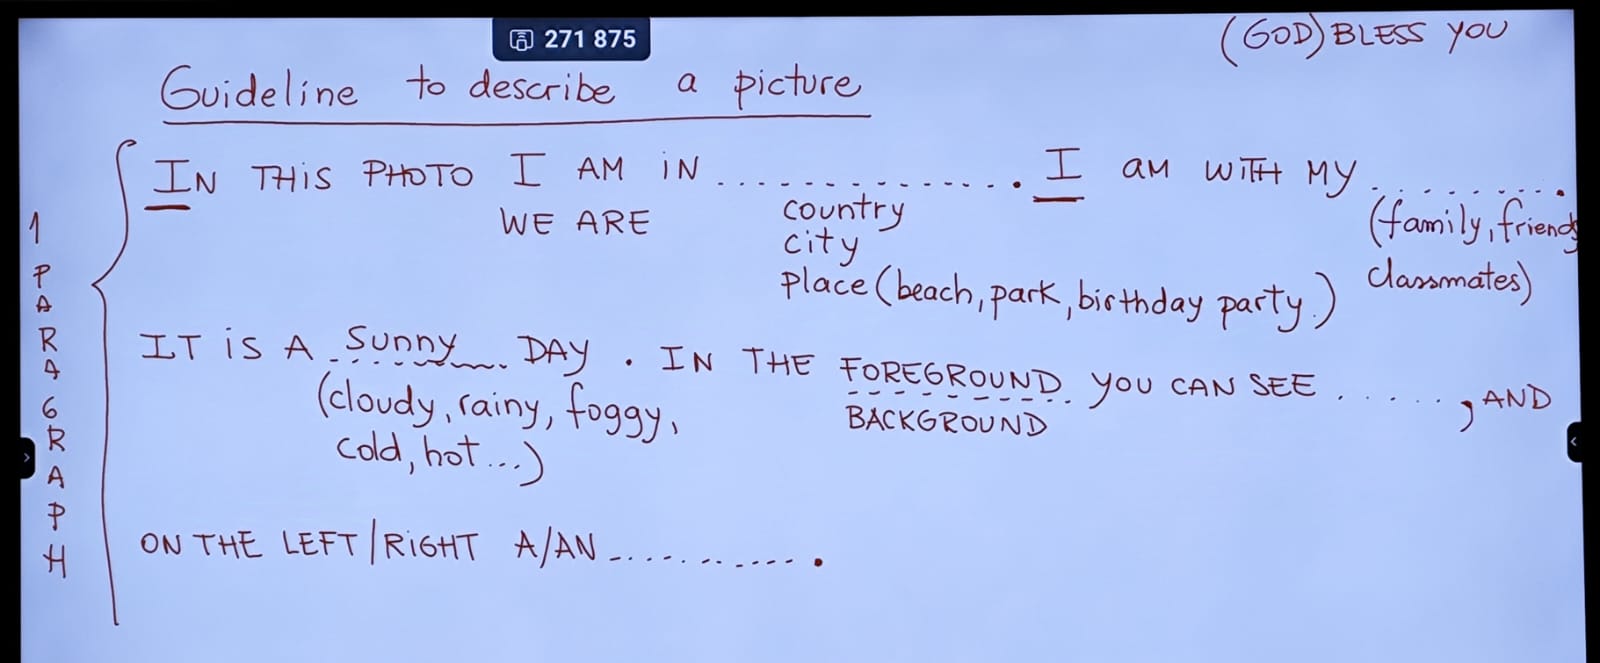 271 875
(GOD) BLESS YOU
Guideline to describe a picture
IN THIS PHOTO I AM IN ............... . I AM WITH MY .......... .
WE ARE
country
city
place (beach, park, birthday party.)
(family, friends
classmates)
IT IS A Sunny DAY . IN THE FOREGROUND YOU CAN SEE ......, AND
(cloudy, rainy, foggy,
cold, hot ...)
BACKGROUND
ON THE LEFT/RIGHT A/AN ............ .
1 PARAGRAPH